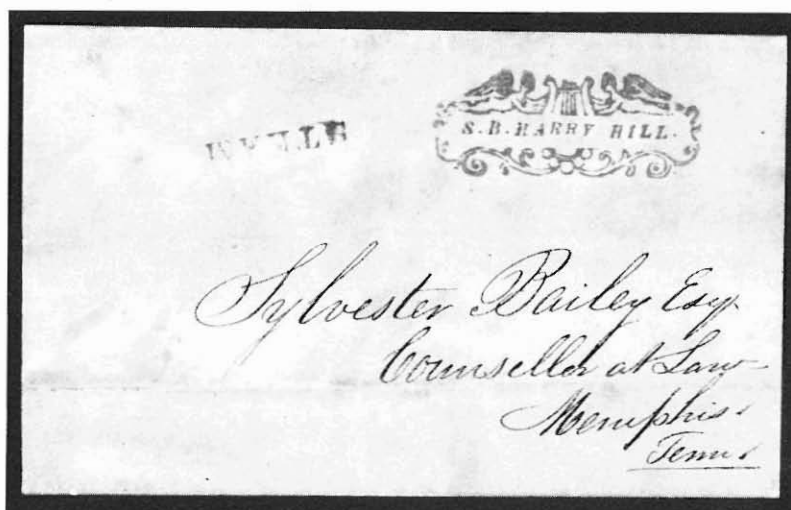 S.B. HARRY HILL.
Sylvester Bailey Esq.
Counseller at Law
Memphis
Tenn.